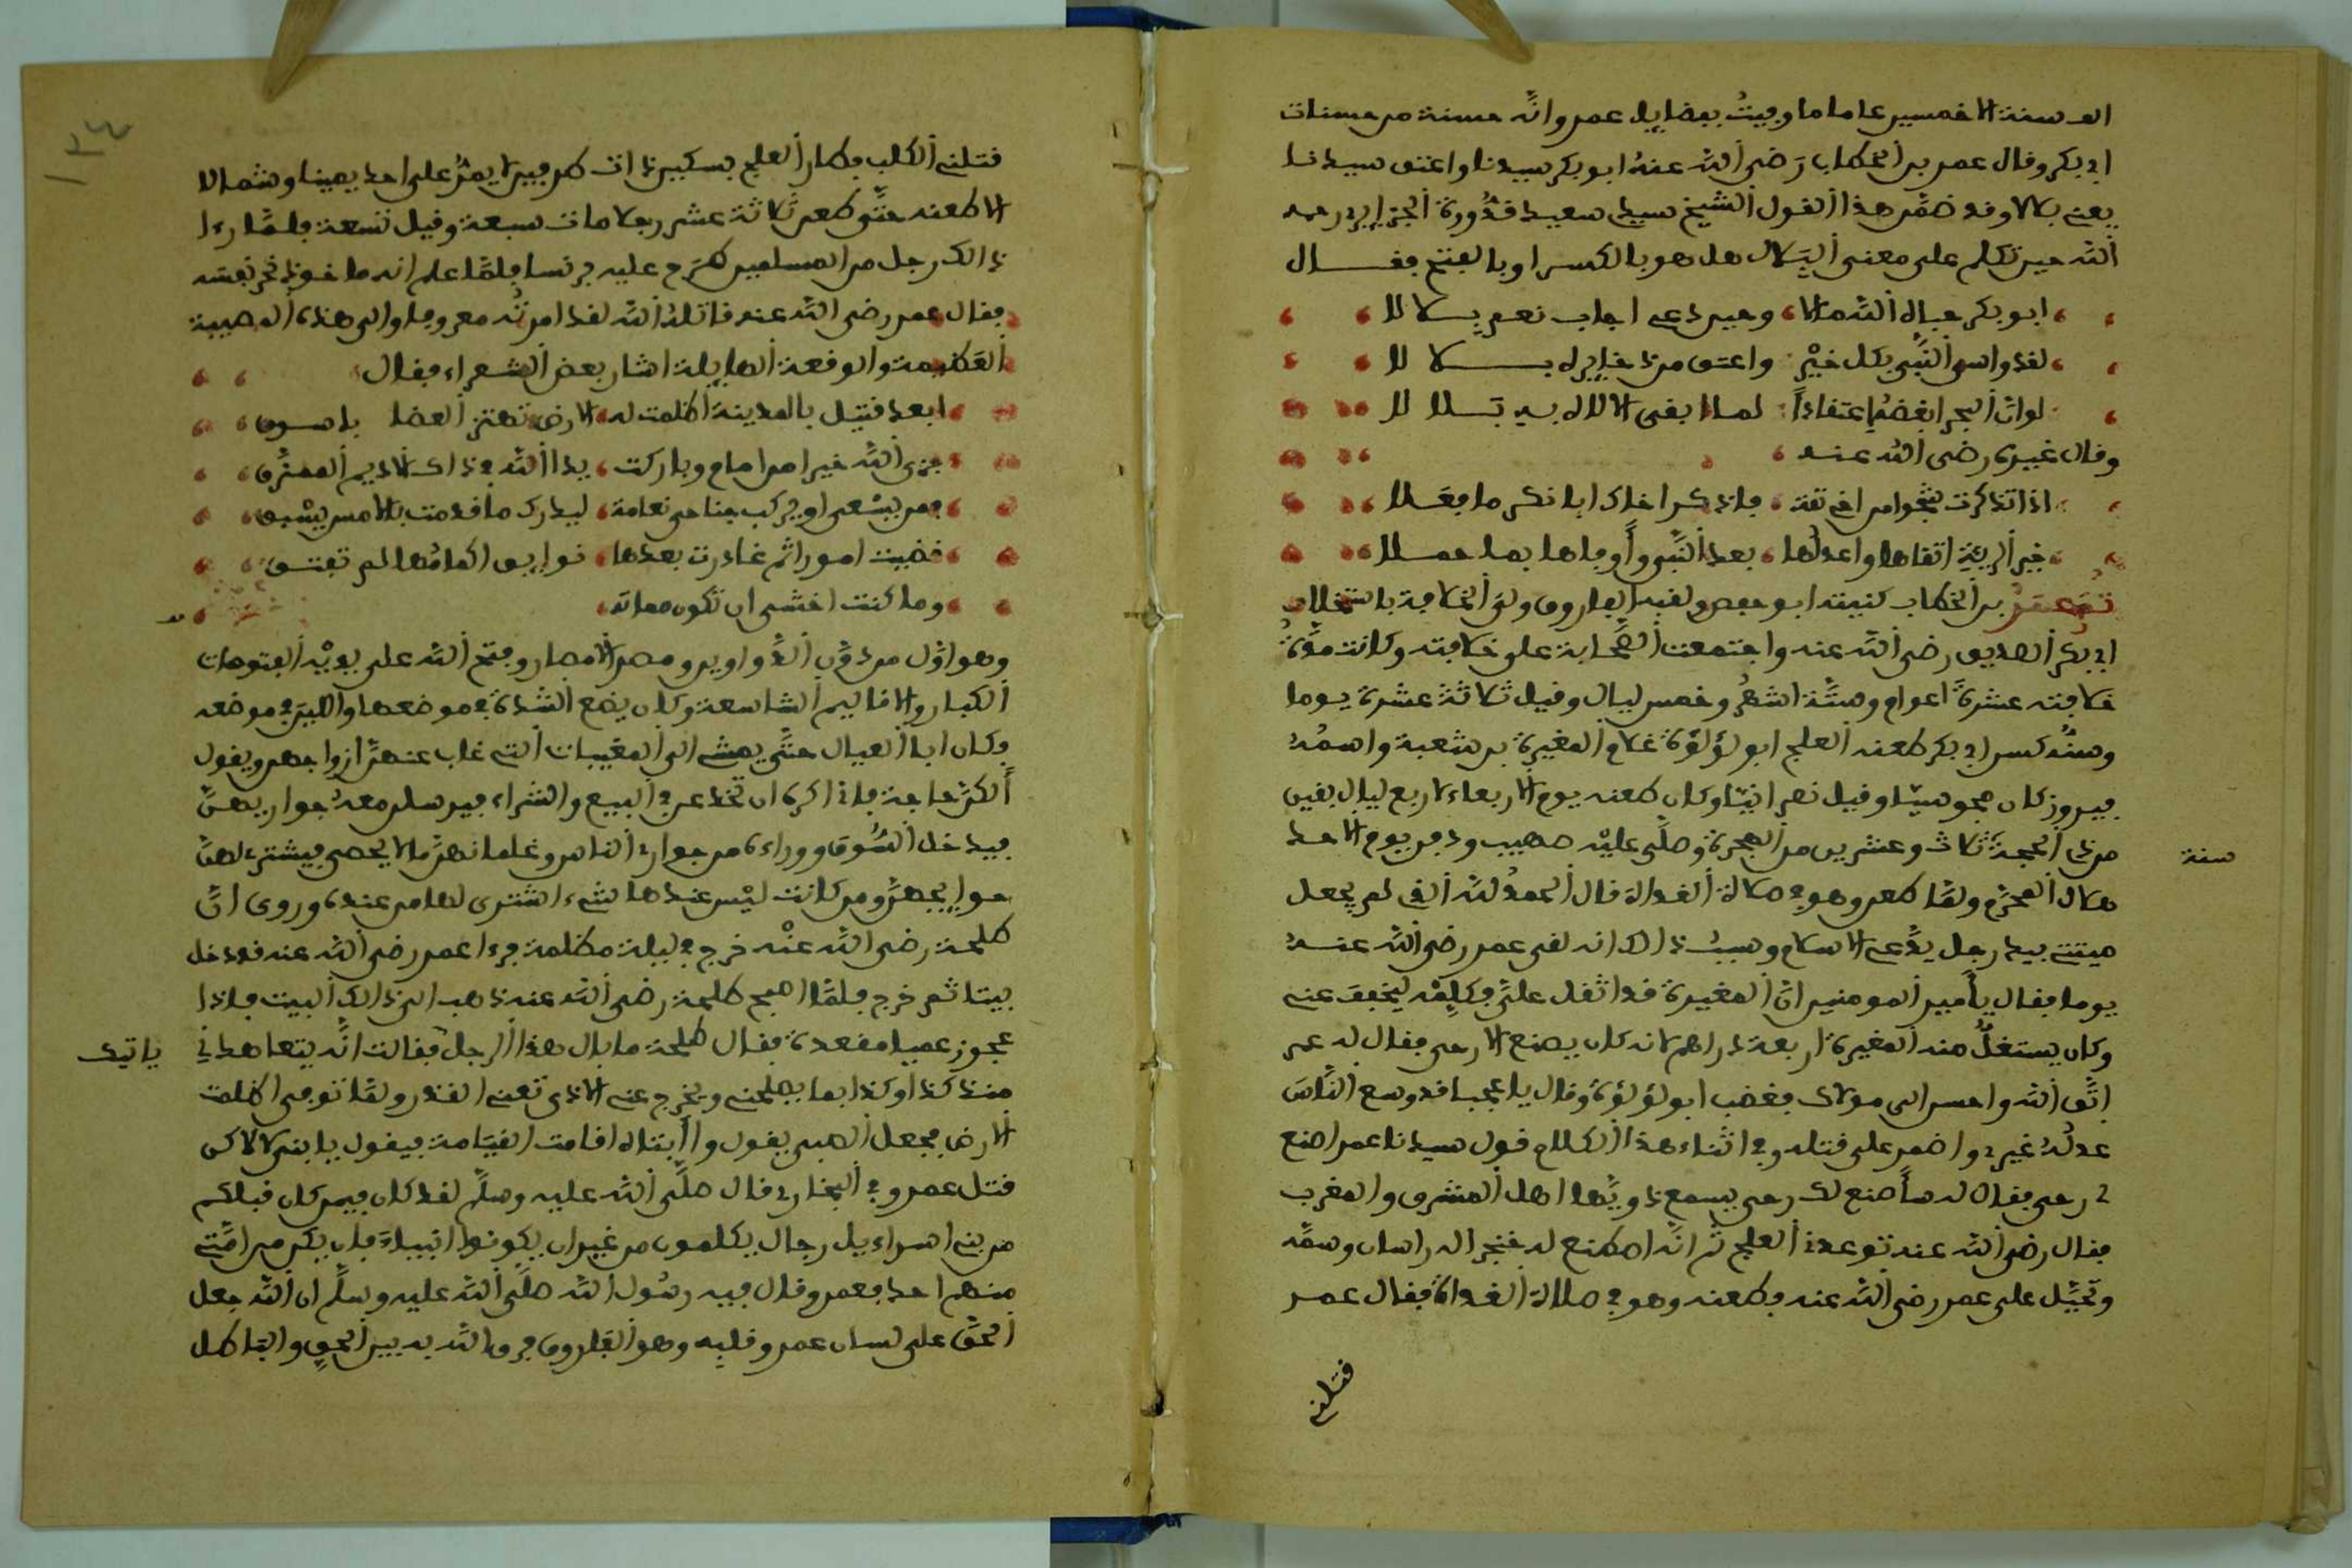 الف سنة الا خمسين عاما ما وفيت بفضايل عمر وانه حسنة من حسنات
ابي بكر وقال عمر بن الخطاب رضي الله عنه ابو بكر سيدنا واعتق سيدنا
يعني بلالا وقد ضمن هذا القول الشيخ سيدي سعيد قدورة الجزايري رحمه
الله حين تكلم على معنى البلال هل هو بالكسر او بالفتح فقال
ابو بكر حبا في الله مالا وحين دعي اجاب نعم بلالا
لقد واسى النبي بكل خير واعتق من ذخايره بلالا
لو ان البحر ابغضه اعتقادا لما ابقى الاله به بلالا
وقال غيره رضي الله عنه
اذا تذكرت شجوا من اخي ثقة فاذكر اخاك ابا بكر ما فعلا
خير البرية اتقاها واعدلها بعد النبي وأوفاها بما حملا
ثم عمر بن الخطاب كنيته ابو حفص ولقبه الفاروق ولي الخلافة باستخلاف
ابي بكر الصديق رضي الله عنه واجتمعت الصحابة على خلافته وكانت مدة
خلافته عشرة اعوام وستة اشهر وخمس ليال وقيل ثلاثة عشرة يوما
وسنه كسن ابي بكر طعنه العلج ابو لؤلؤة غلام المغيرة بن شعبة واسمه
فيروز كان مجوسيا وقيل نصرانيا وكان طعنه يوم الاربعاء لاربع ليال بقين
من ذي الحجة ثلاث وعشرين من الهجرة وصلى عليه صهيب ودفن يوم الاحد
سنة
هلال المحرم ولما طعن وهو في صلاة الغداة قال الحمد لله الذي لم يجعل
ميتتي بيد رجل يدعي الاسلام وسبب ذالك انه لقي عمر رضي الله عنه
يوما فقال يا أمير المومنين ان المغيرة قد اثقل علي فكلمه ليخفف عني
وكان يستغل منه المغيرة اربعة دراهم لانه كان يصنع الارحى فقال له عمر
اتق الله واحسن الى مولاك فغضب ابو لؤلؤة وقال يا عجبا قد وسع الناس
عدله غيري واضمر على قتله وفي اثناء هذا الكلام قول سيدنا عمر اصنع
لي رحى فقال له سأصنع لك رحى يسمع دويها اهل المشرق والمغرب
فقال رضي الله عنه توعدني العلج ثم انه اصطنع له خنجرا له راسان وسمه
وتحيل على عمر رضي الله عنه فطعنه وهو في صلاة الغداة فقال عمر
قتلني
١٣٤
قتلني الكلب فطار العلج بسكين ذات طرفين لا يمر على احد يمينا وشمالا
الا طعنه حتى طعن ثلاثة عشر رجلا مات سبعة وقيل تسعة فلما راى
ذالك رجل من المسلمين طرح عليه برنسا فلما علم انه ماخوذ نحر نفسه
فقال عمر رضي الله عنه قاتله الله لقد امرته معروفا والى هذه المصيبة
العظيمة والوقعة الهايلة اشار بعض الشعراء فقال
ابعد قتيل بالمدينة اظلمت له الارض تهتز العضا باسوق
جزى الله خيرا من امام وباركت يد الله في ذاك الاديم الممزق
فمن يسعى او يركب جناحي نعامة ليدرك ما قدمت بالامس يسبق
قضيت امورا ثم غادرت بعدها نوايق اكمامها لم تفتق
وما كنت اخشى ان تكون مماته
وهو اول من دون الدواوين ومصر الامصار وفتح الله على يديه الفتوحات
الكبار والاقاليم الشاسعة وكان يضع الشدة في موضعها واللين في موضعه
وكان ابا العيال حتى يمشي الى المغيبات التي غاب عنهن ازواجهن ويقول
ألكن حاجة فاني اكره ان تخدعن في البيع والشراء فيرسلن معه جواريهن
فيدخل السوق ووراءه من جواري الناس وغلمانهن ما لا يحصى فيشتري لهن
حوايجهن ومن كانت ليس عندها شيء اشترى لها من عنده وروى ان
طلحة رضي الله عنه خرج في ليلة مظلمة فرءا عمر رضي الله عنه قد دخل
بيتا ثم خرج فلما اصبح طلحة رضي الله عنه ذهب الى ذالك البيت فاذا
عجوز عميا مقعدة فقال طلحة ما بال هذا الرجل فقالت انه يتعاهدني
ياتيك
منذ كذا وكذا بما يصلحني ويخرج عني الاذى تعني القذر ولما توفي اظلمت
الارض فجعل الصبي يقول وا أبتاه اقامت القيامة فيقول يا بني لا لاكن
قتل عمر وفي البخاري قال صلى الله عليه وسلم لقد كان فيمن كان قبلكم
من بني اسراءيل رجال يكلمون من غير ان يكونوا انبياء فان يكن من امتي
منهم احد فعمر وقال فيه رسول الله صلى الله عليه وسلم ان الله جعل
الحق على لسان عمر وقلبه وهو الفاروق فرق الله به بين الحق والباطل